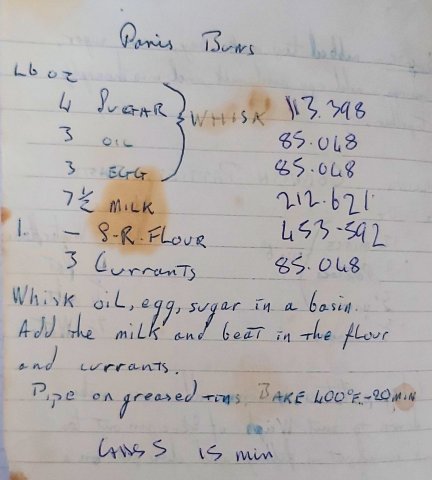 Paris Buns
Lb oz
4 SUGAR } WHISK 113.398
3 OIL 85.048
3 EGG 85.048
7½ MILK 212.621
1. – S.R. FLOUR 453-592
3 Currants 85.048
Whisk oil, egg, sugar in a basin.
Add the milk and beat in the flour
and currants.
Pipe on greased tins BAKE 400°F-20 MIN
GAS 5 15 min